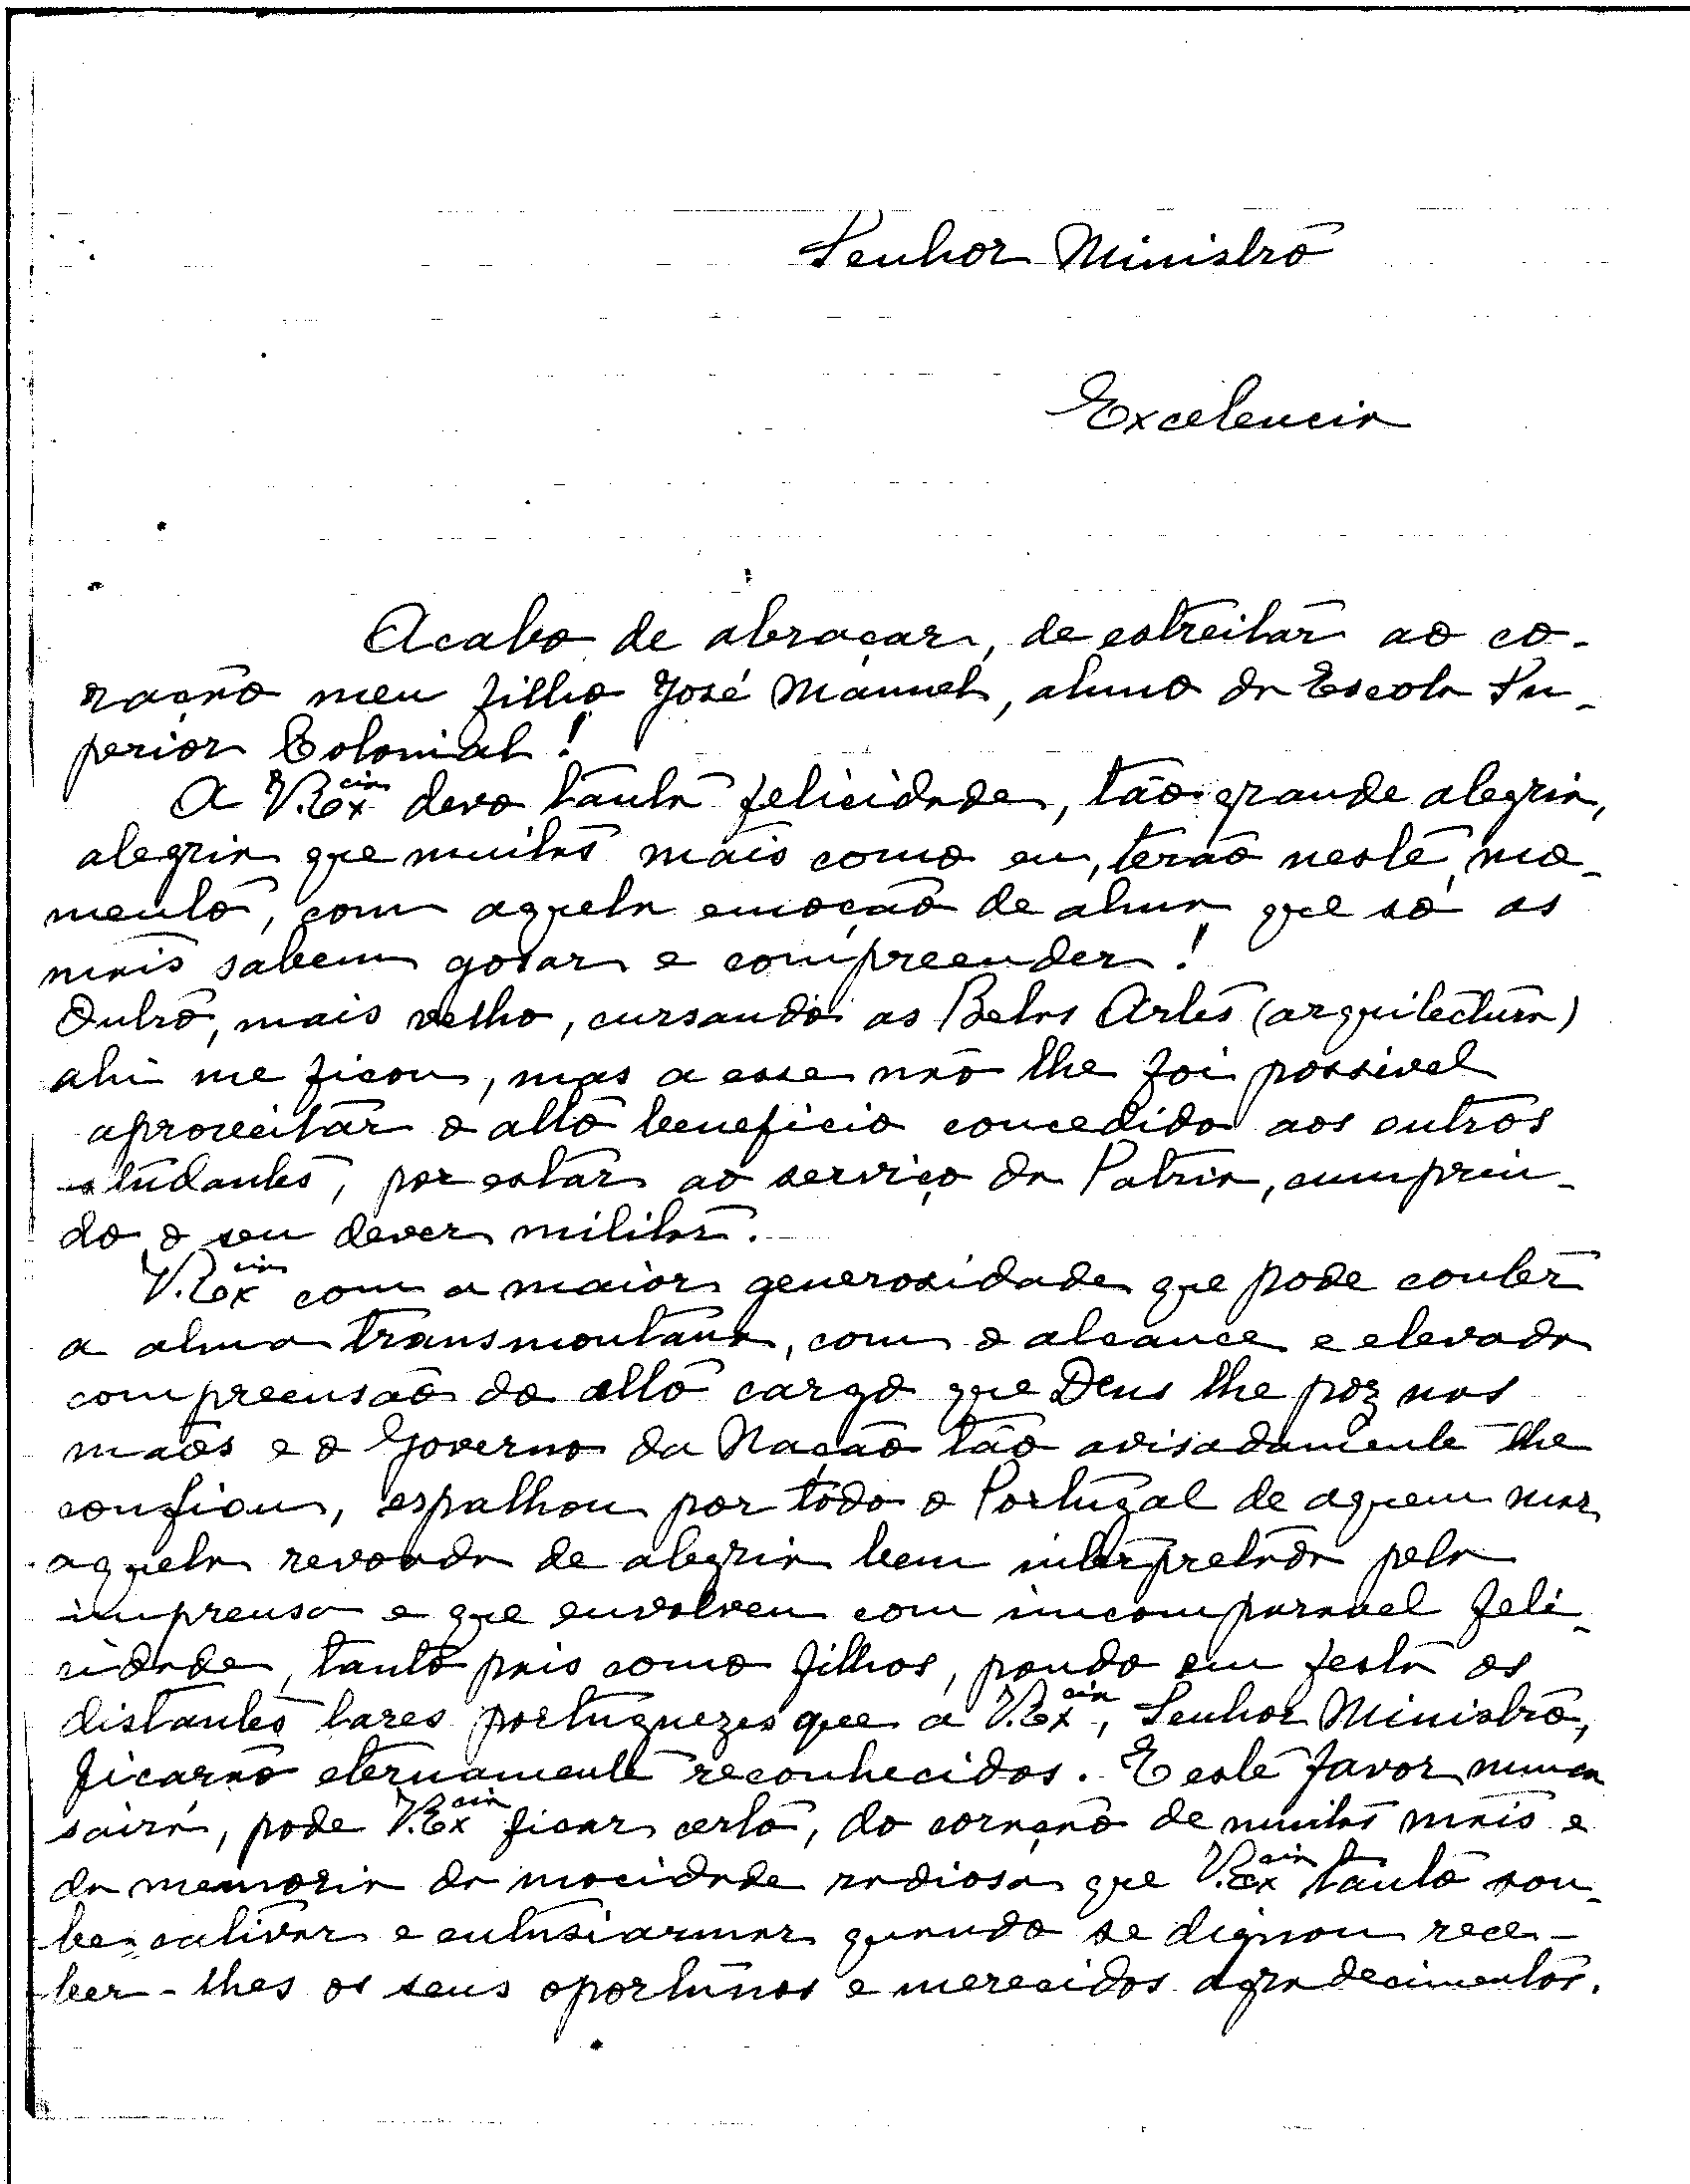 Senhor Ministro
Excelencia
Acabo de abraçar, de estreitar ao co-
ração meu filho José Manuel, aluno da Escola Su-
perior Colonial!
A V. Ex.cia devo tanta felicidade, tão grande alegria,
alegria que muitas mais como eu, terão neste mo-
mento, com aquela emoção de alma que só as
mais sabem gosar e compreender!
Outro, mais velho, cursando as Belas Artes (arquitectura)
ahi me ficou, mas a esse não lhe foi possivel
aproveitar o alto beneficio concedido aos outros
estudantes, por estar ao serviço da Patria, cumprin-
do o seu dever militar.
V. Ex.cia com a maior generosidade que pode conter
a alma transmontana, com o alcance e elevada
compreensão do alto cargo que Deus lhe poz nas
mãos e o Governo da Nação tão avisadamente lhe
confiou, espalhou por todo o Portugal de aquem mar
aquela revoada de alegria bem interpretada pela
imprensa e que envolveu com imcomparavel feli-
cidade, tanto pais como filhos, pondo em festa os
distantes lares portuguezes que a V. Ex.cia, Senhor Ministro,
ficarão eternamente reconhecidos. E este favor nunca
sairá, pode V. Ex.cia ficar certo, do coração de muitas mais e
da memoria da mocidade radiosa que V. Ex.cia tanto sou-
be cativar e entusiasmar quando se dignou rece-
ber-lhes os seus oportunos e merecidos agradecimentos.